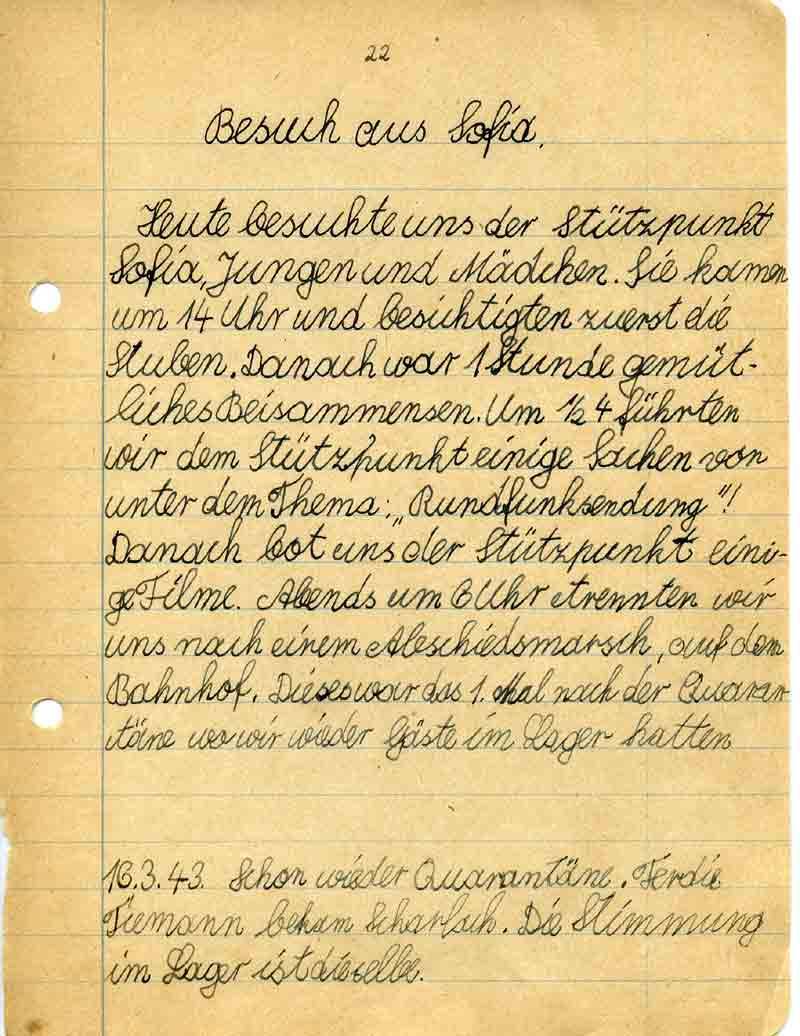 22
Besuch aus Sofia.
Heute besuchte uns der Stützpunkt
Sofia, Jungen und Mädchen. Sie kamen
um 14 Uhr und besichtigten zuerst die
Stuben. Danach war 1 Stunde gemüt-
liches Beisammensen. Um 1/2 4 führten
wir dem Stützpunkt einige Sachen vor
unter dem Thema: „Rundfunksendung"!
Danach bot uns der Stützpunkt eini-
ge Filme. Abends um 6 Uhr trennten wir
uns nach einem Abschiedsmarsch, auf dem
Bahnhof. Dieses war das 1. Mal nach der Quaran-
täne wo wir wieder Gäste im Lager hatten
16.3.43. Schon wieder Quarantäne. Ferdie
Tiemann bekam Scharlach. Die Stimmung
im Lager ist dieselbe.